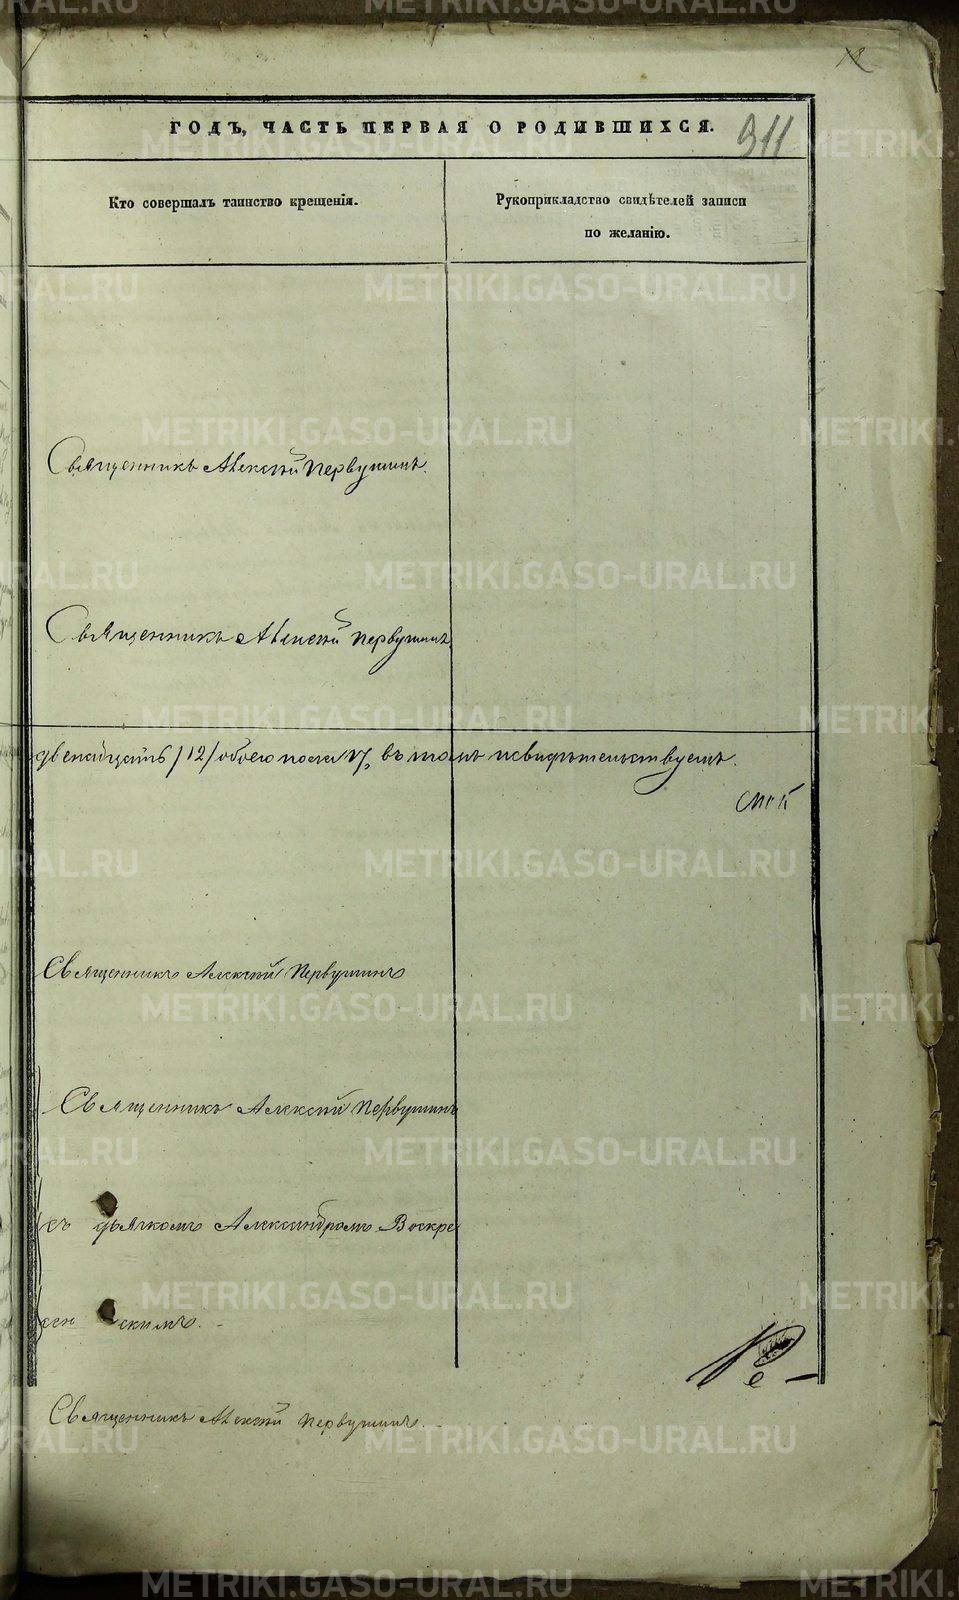 ГОДЪ, ЧАСТЬ ПЕРВАЯ О РОДИВШИХСЯ.
311
Кто совершалъ таинство крещенія.
Рукоприкладство свидѣтелей записи
по желанію.
Священникъ Алексій Первушинъ.
Священникъ Алексій Первушинъ
двенайцать /12/ обоего пола 17, въ томъ и свидѣтельствуемъ.
Священникъ Алексій Первушинъ
Священникъ Алексій Первушинъ
съ дьячкомъ Александромъ Воскре
сен скимъ.
Священникъ Алексій Первушинъ.
METRIKI.GASO-URAL.RU